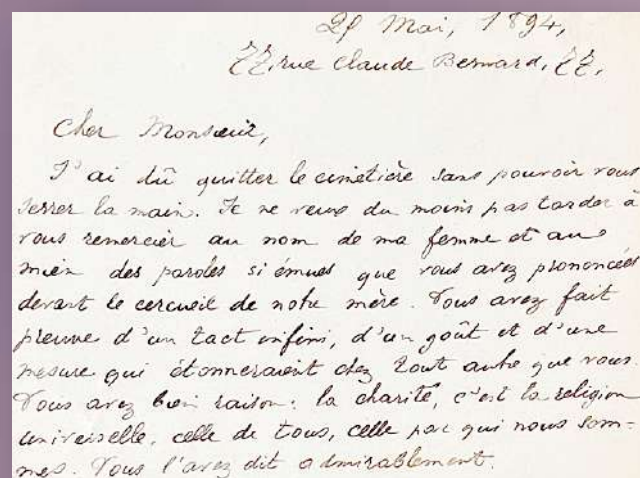 Mai, 1894,
rue Claude Bernard,
Cher Monsieur,
J'ai dû quitter le cimetière sans pouvoir vous
serrer la main. Je ne veux du moins pas tarder à
vous remercier au nom de ma femme et au
mien des paroles si émues que vous avez prononcées
devant le cercueil de notre mère. Vous avez fait
preuve d'un tact infini, d'un goût et d'une
mesure qui étonneraient chez tout autre que vous.
Vous avez bien raison: la charité, c'est la religion
universelle, celle de tous, celle par qui nous som-
mes. Vous l'avez dit admirablement.